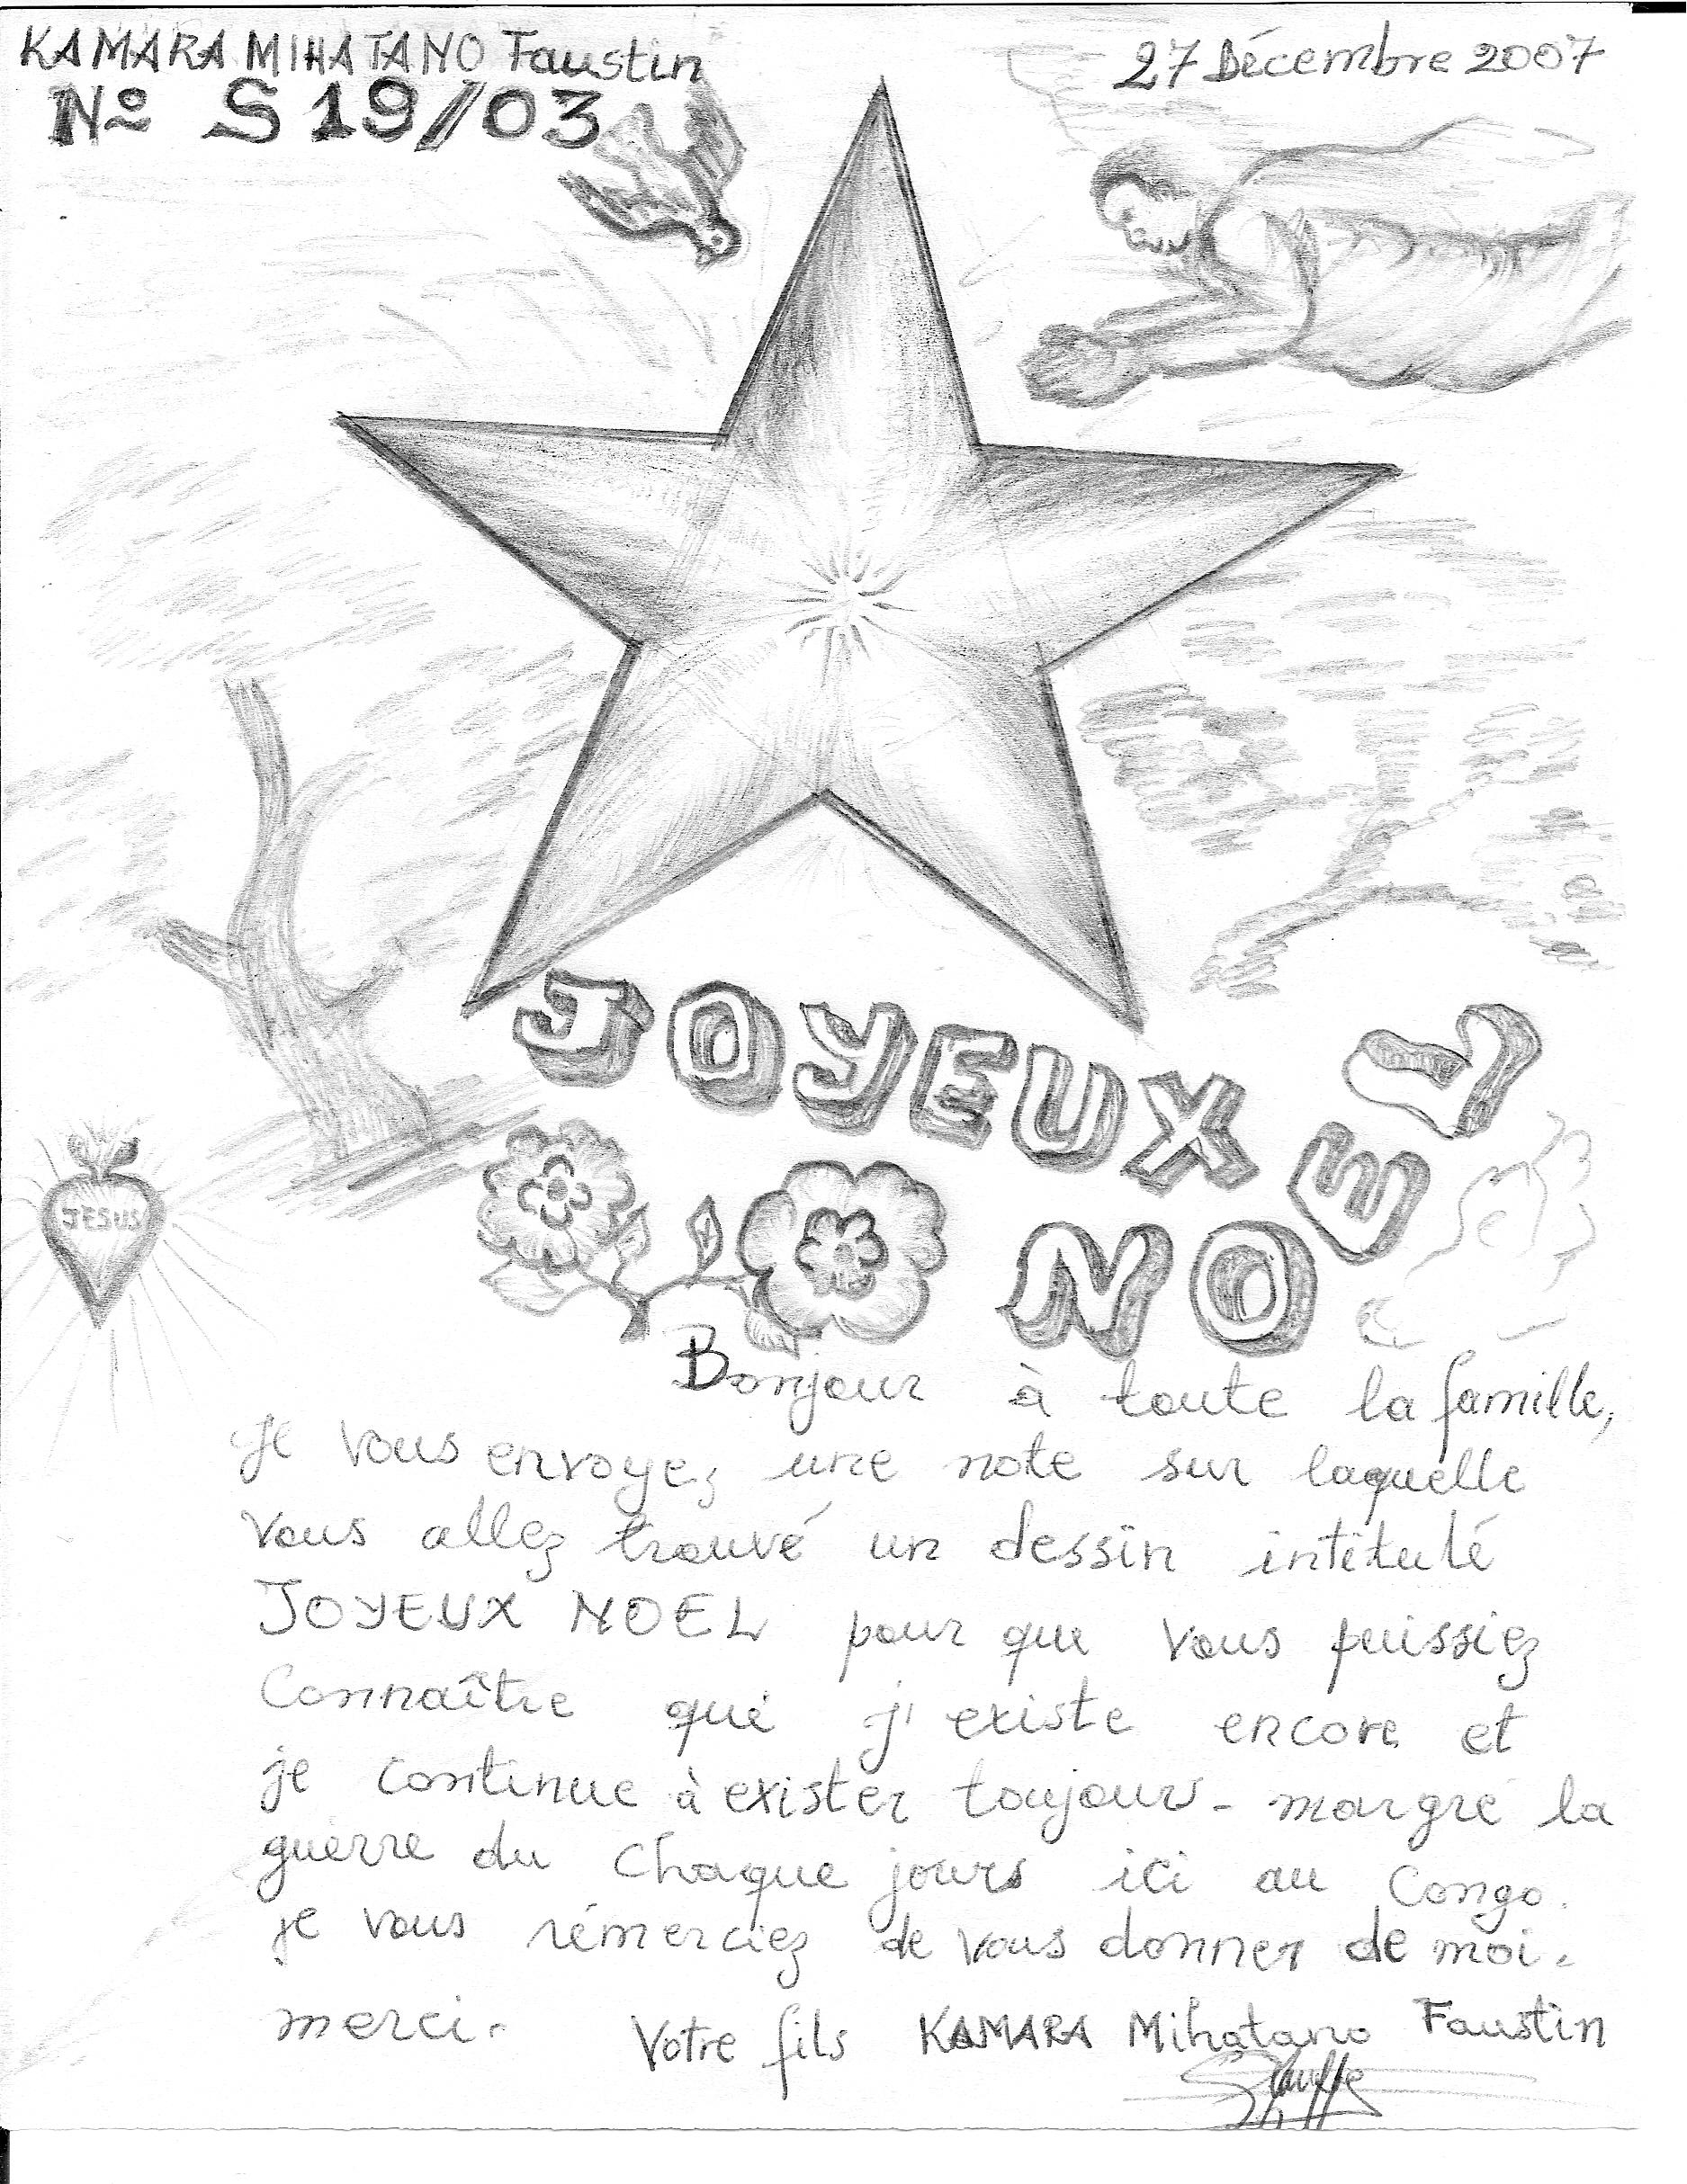 KAMARA MIHATANO Faustin
27 Décembre 2007
No S 19//03
JOYEUX
NOEL
JESUS
Bonjour à toute la famille,
je vous envoyez une note sur laquelle
Vous allez trouvé un dessin intitulé
JOYEUX NOEL pour que Vous puissiez
Connaître que j'existe encore et
je continue à exister toujours - margré la
guerre du Chaque jours ici au Congo.
je vous rémerciez de Vous donner de moi.
merci.
Votre fils KAMARA Mihatano Faustin